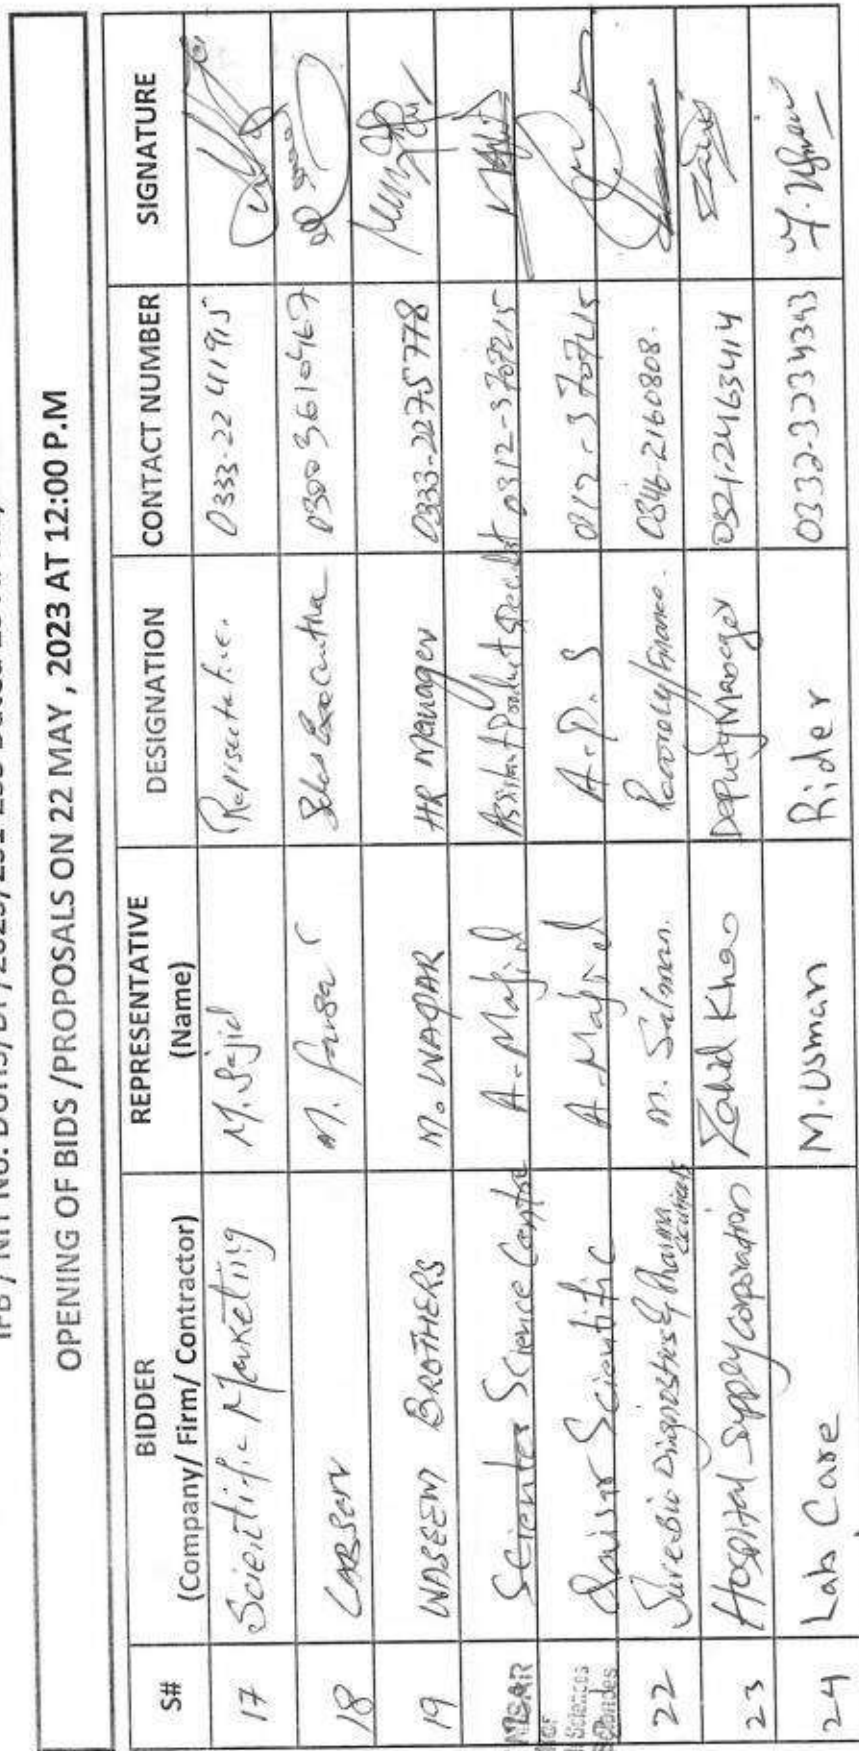 OPENING OF BIDS /PROPOSALS ON 22 MAY , 2023 AT 12:00 P.M
S# BIDDER (Company/ Firm/ Contractor) REPRESENTATIVE (Name) DESIGNATION CONTACT NUMBER SIGNATURE
17 Scientific Marketing M. Sajid Representative. 0333-2241915
18 M. 03003610467
19 WASEEM BROTHERS M. WAQAR HR Manager 0333-2275778
Science Centre A. Majid Assistant Product 0312-3707215
Scientific A. Majid A.P.S 0312-3707215
22 Surebio Diagnostics & Pharmaceuticals M. Salman. Recovery/Finance. 0346-2160808.
23 Hospital Supply Corporation Zahid Khan Deputy Manager 0321-2463414
24 Lab Care M. Usman Rider 0332-3234343